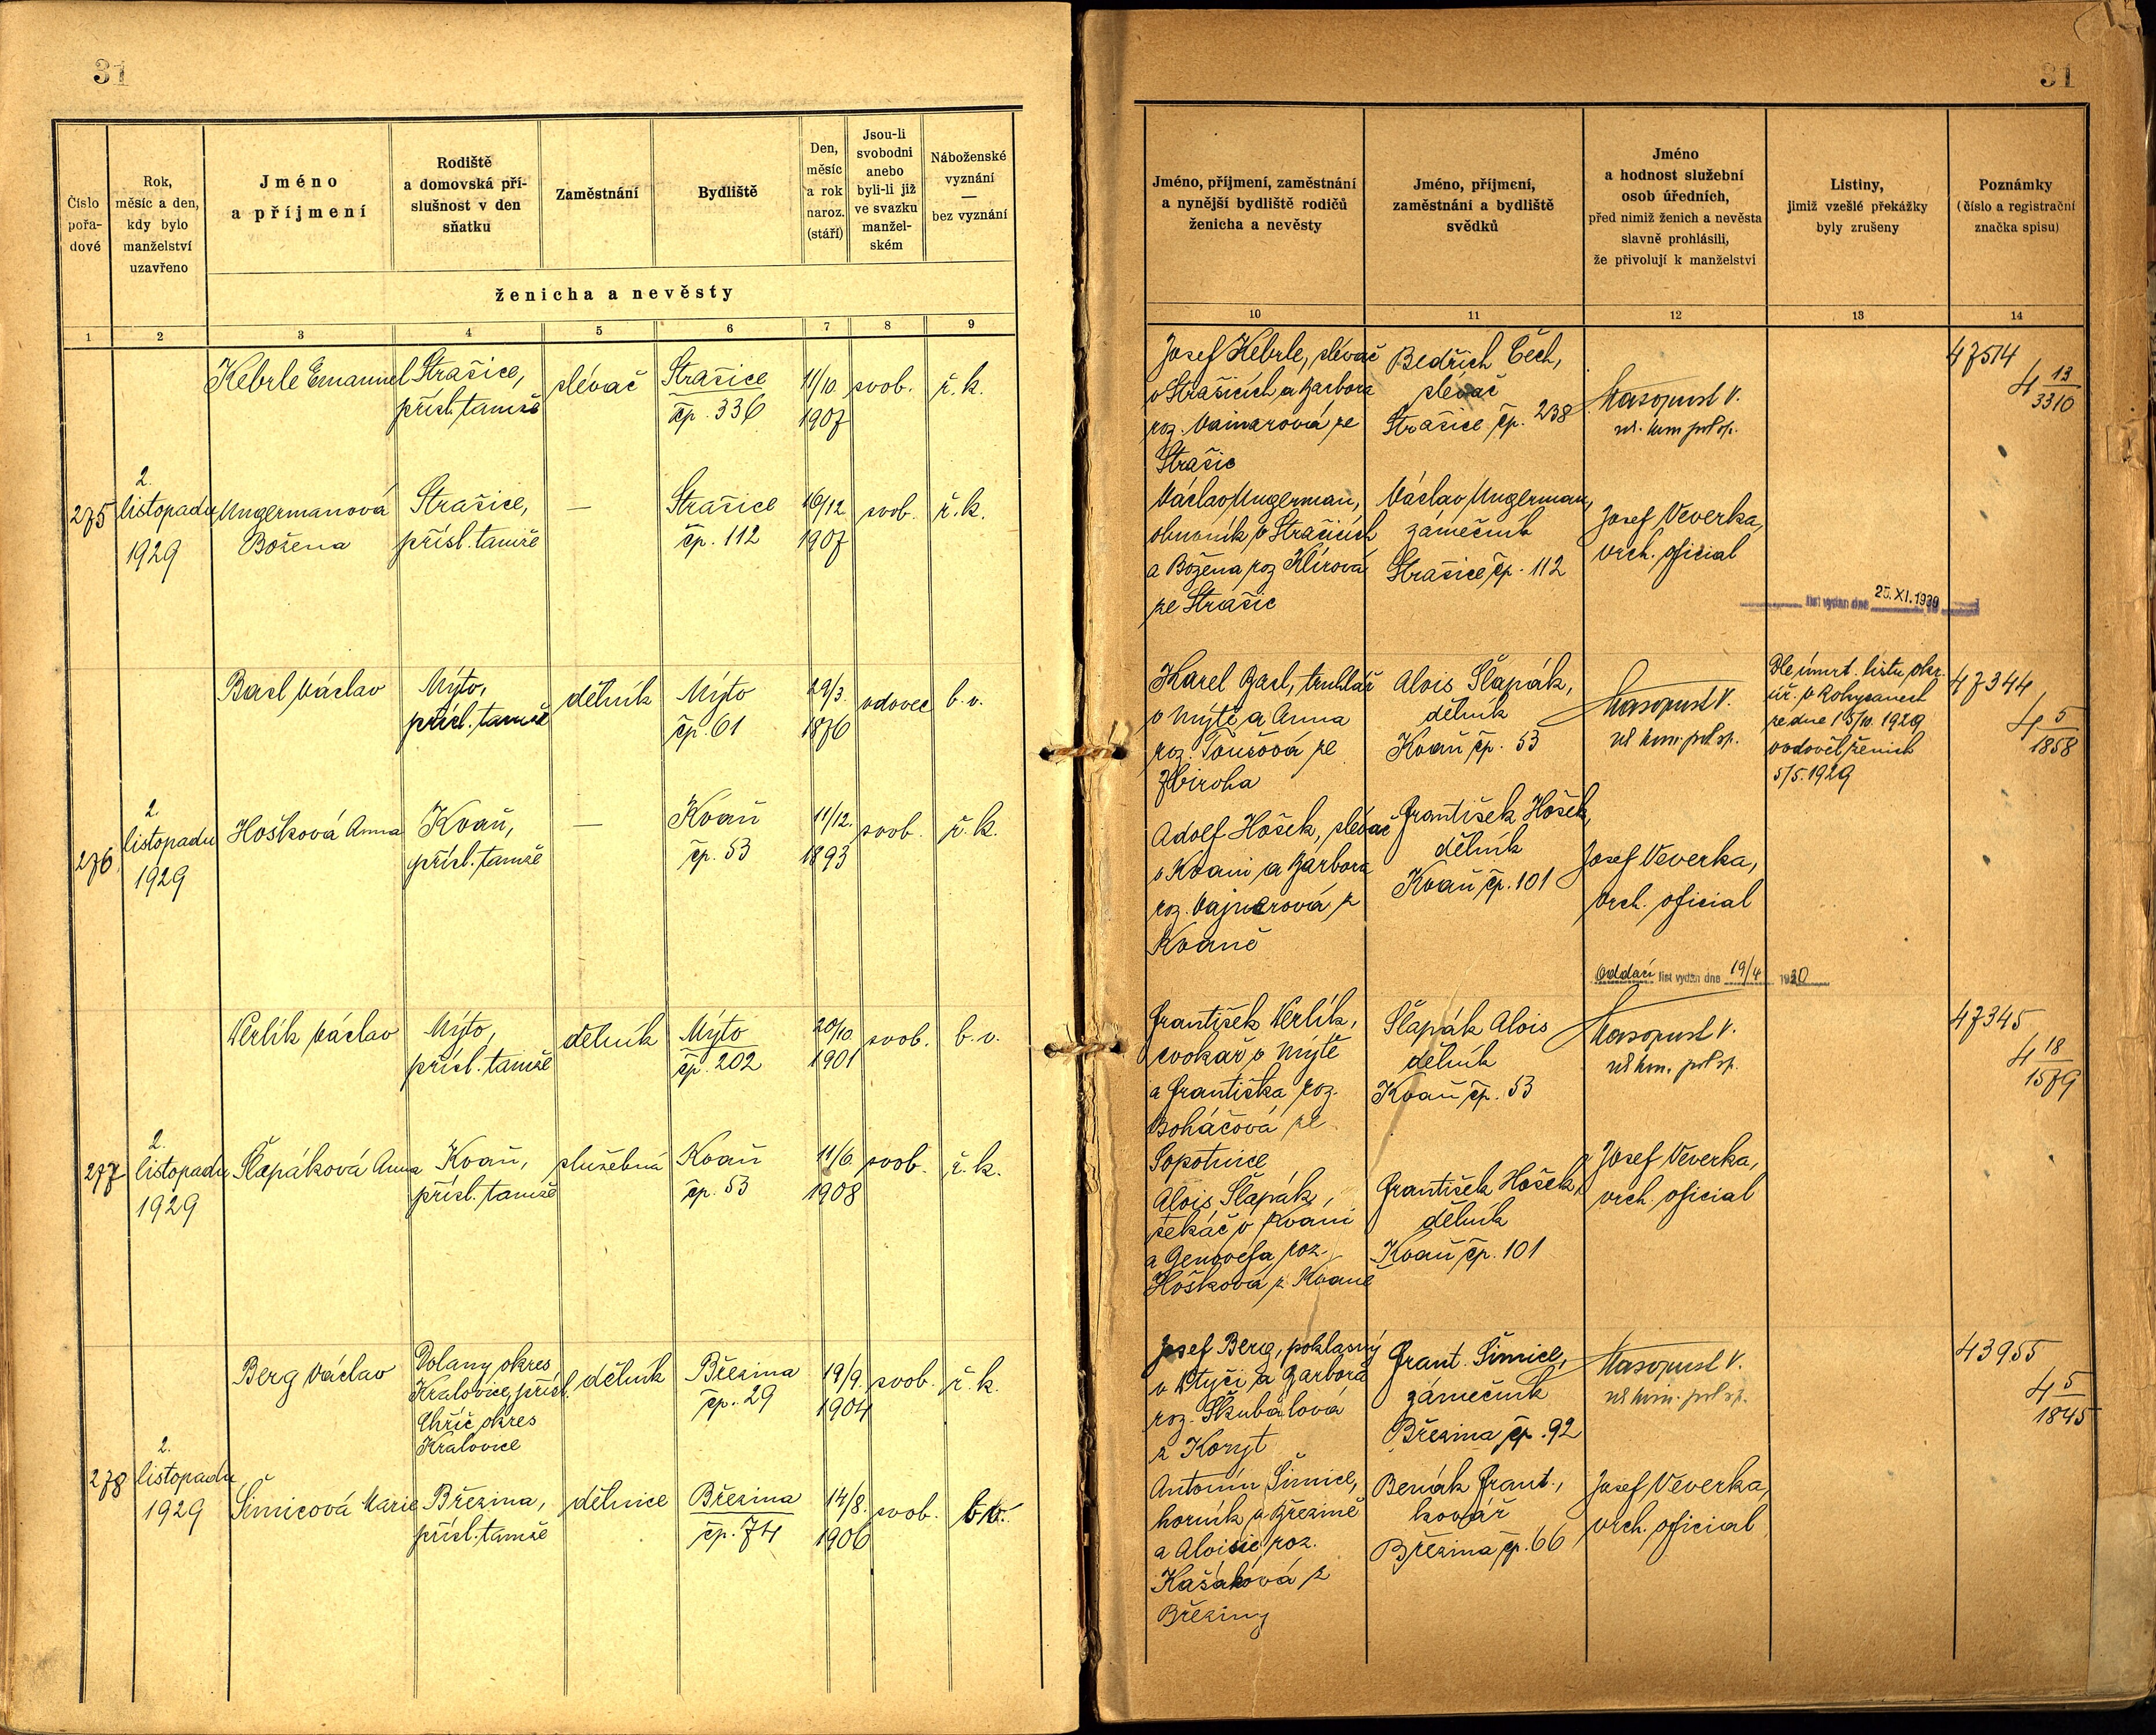 31
Číslo pořa-dové
Rok, měsíc a den, kdy bylo manželství uzavřeno
Jméno a příjmení
Rodiště a domovská pří-slušnost v den sňatku
Zaměstnání
Bydliště
Den, měsíc a rok naroz. (stáří)
Jsou-li svobodni anebo byli-li již ve svazku manžel-ském
Náboženské vyznání — bez vyznání
ženicha a nevěsty
1 2 3 4 5 6 7 8 9
Kebrle Emanuel Strašice, slévač Strašice 11/10. svob. ř.k.
přísl. tamže čp. 336 1907
2.
275 listopadu Ungermanová Strašice, — Strašice 16/12. svob. ř.k.
1929 Božena přísl. tamže čp. 112 1907
Basl Václav Mýto, dělník Mýto 29/3. vdovec b.v.
přísl. tamže čp. 61 1876
2.
276 listopadu Hošková Anna Kvaň, — Kvaň 11/12. svob. ř.k.
1929 přísl. tamže čp. 53 1893
Verlík Václav Mýto, dělník Mýto 20/10. svob. b.v.
přísl. tamže čp. 202 1901
2.
277 listopadu Šlapáková Anna Kvaň, služebná Kvaň 11/6. svob. ř.k.
1929 přísl. tamže čp. 53 1908
Berg Václav Dolany okres dělník Březina 19/9. svob. ř.k.
Kralovice, přísl. čp. 29 1904
Chříč okres
Kralovice
2.
278 listopadu
1929 Šimicová Marie Březina, dělnice Březina 14/8. svob. b.v.
přísl. tamže čp. 74 1906
31
Jméno, příjmení, zaměstnání a nynější bydliště rodičů ženicha a nevěsty
Jméno, příjmení, zaměstnání a bydliště svědků
Jméno a hodnost služební osob úředních, před nimiž ženich a nevěsta slavně prohlásili, že přivolují k manželství
Listiny, jimiž vzešlé překážky byly zrušeny
Poznámky (číslo a registrační značka spisu)
10 11 12 13 14
Josef Kebrle, slévač Bedřich Čech, 47514
v Strašicích a Barbora slévač Masopust V. 4 13/3310
roz. Vainarová ze Strašice čp. 238
Strašic
Václav Ungerman, Václav Ungerman,
obuvník v Strašicích zámečník Josef Veverka,
a Božena roz. Klírová Strašice čp. 112 vrch. oficial
ze Strašic
list vydán dne 25. XI. 1939
Karel Basl, truhlář Alois Šlapák, Masopust V. Dle úmrt. listu okr. 47344
v Mýtě a Anna dělník úř. v Rokycanech 4 5/1858
roz. Toušová ze Kvaň čp. 53 ze dne 15/10. 1929
Zbiroha ovdověl ženich
5/5. 1929
Adolf Hošek, slévač František Hošek,
v Kvani a Barbora dělník Josef Veverka,
roz. Vajnerová z Kvaň čp. 101 vrch. oficial
Kvaně
oddací list vydán dne 19/4 1930
František Verlík, Šlapák Alois Masopust V. 47345
cvokař v Mýtě dělník 4 18/1579
a Františka roz. Kvaň čp. 53
Boháčová ze
Sopotnice Josef Veverka,
Alois Šlapák, František Hošek, vrch. oficial
sekáč v Kvani dělník
a Genovefa roz. Kvaň čp. 101
Hošková z Kvaně
Josef Berg, pokladný Frant. Šimice, Masopust V. 43955
a Barbora zámečník 4 5/1845
roz. Škubalová Březina čp. 92
z Koryt
Antonín Šimice, Benák Frant., Josef Veverka,
horník v Březině kovář vrch. oficial
a Aloisie roz. Březina čp. 66
Kašáková z
Březiny